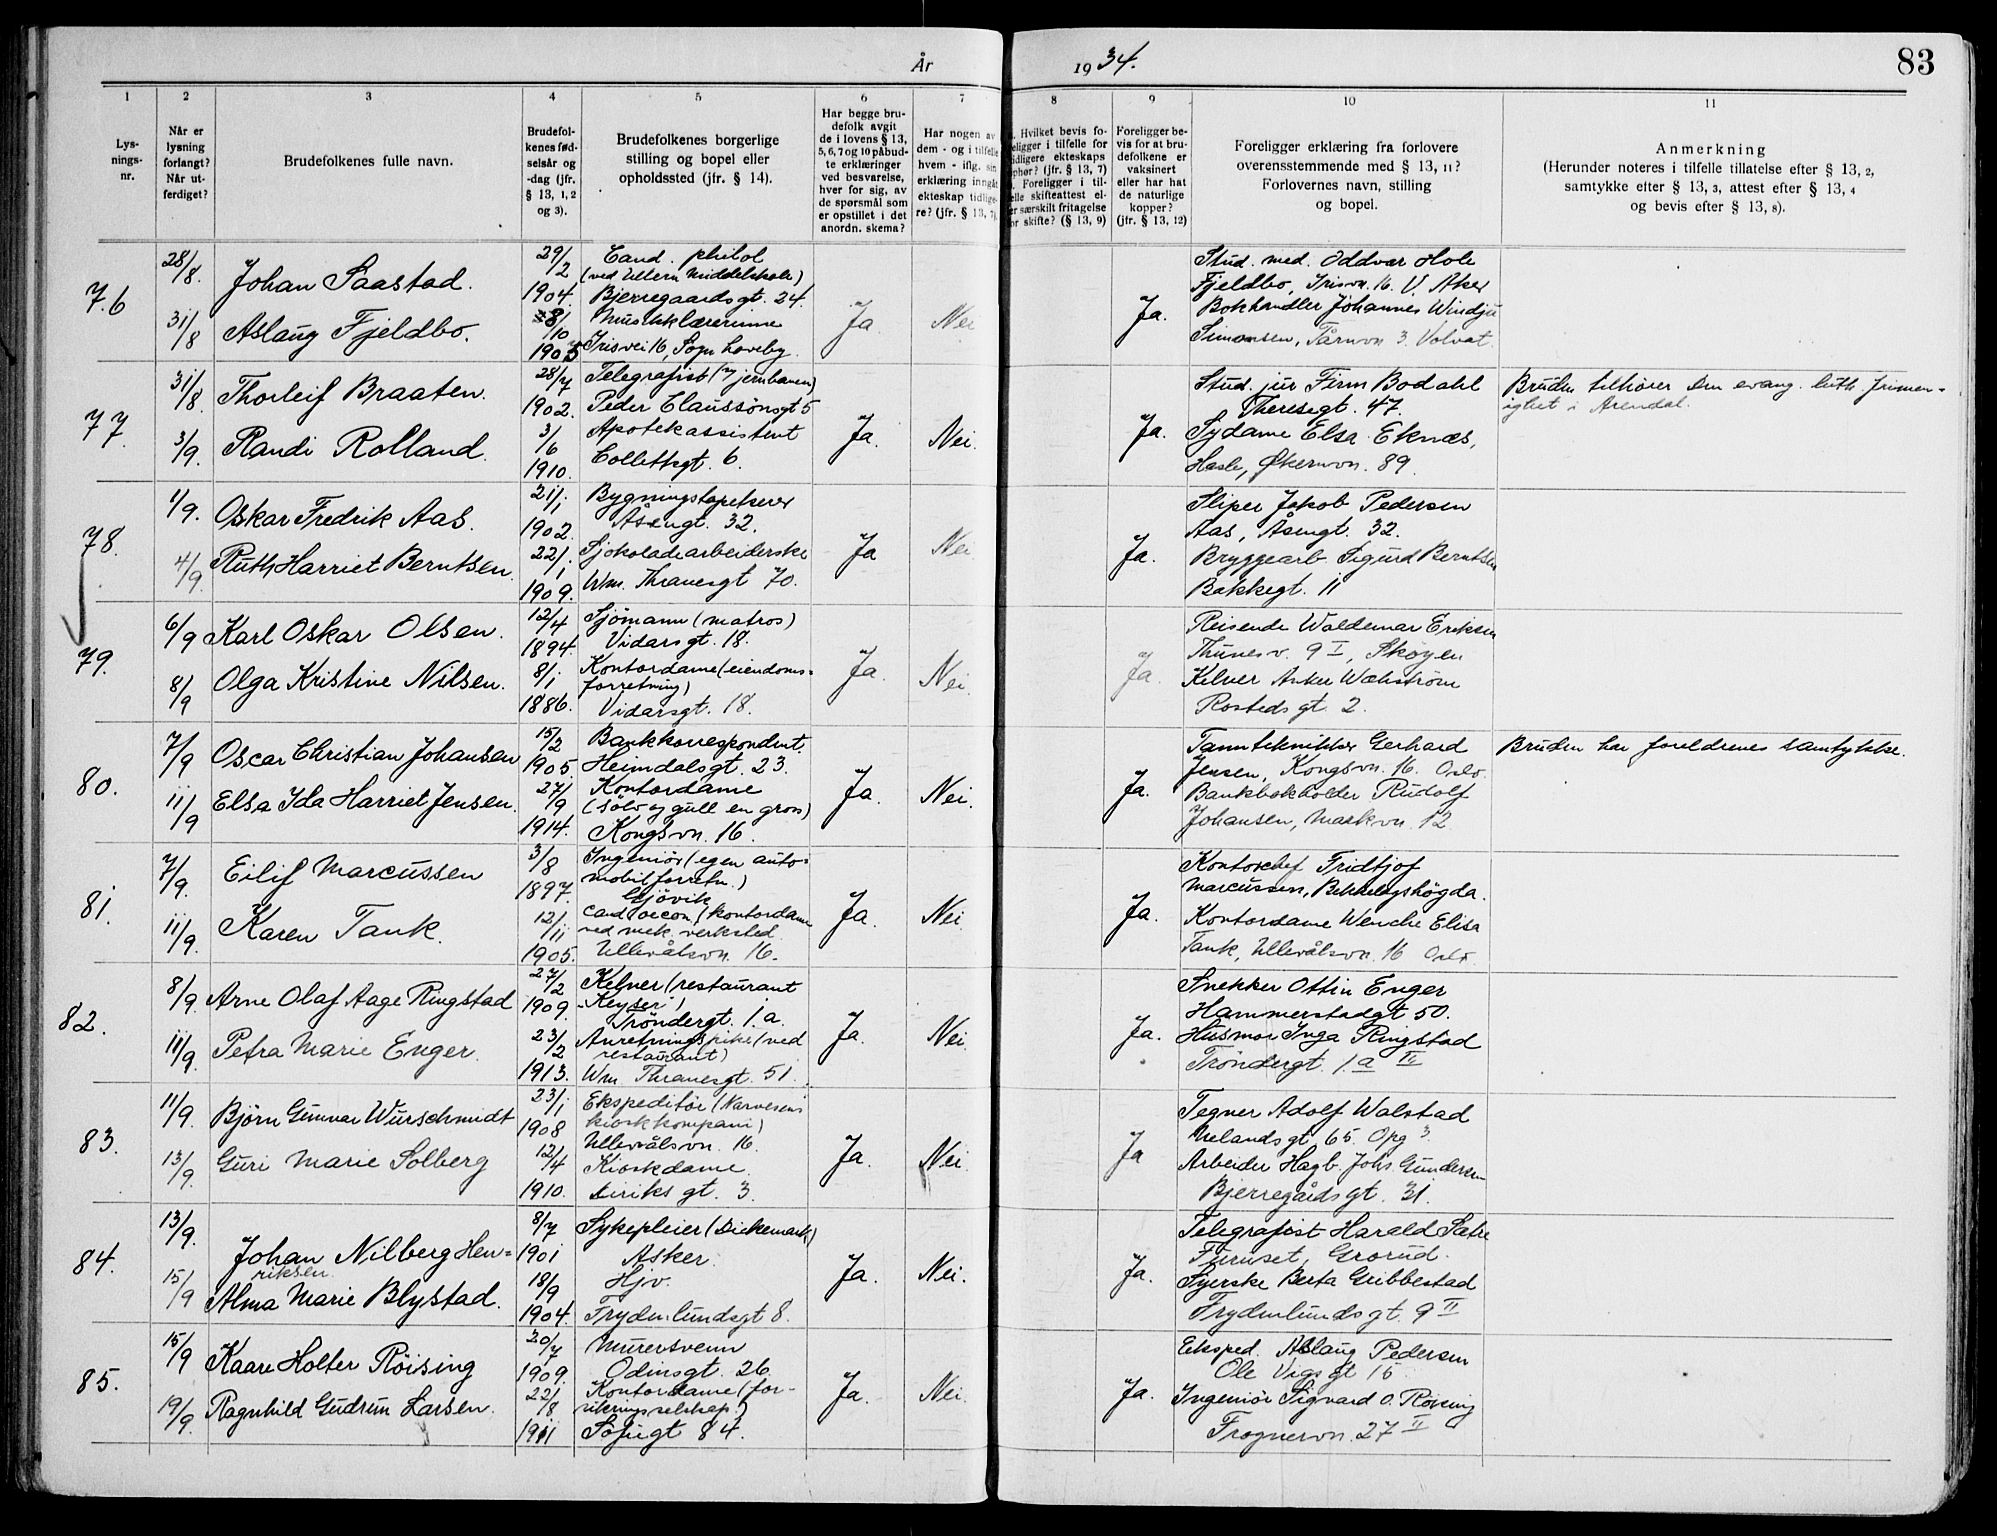 År 1934.
83
1 2 3 4 5 6 7 8 9 10 11
Lys-
nings-
nr.
Når er
lysning
forlangt?
Når ut-
ferdiget?
Brudefolkenes fulle navn.
Brudefol-
kenes fød-
selsår og
-dag (jfr.
§ 13, 1, 2
og 3).
Brudefolkenes borgerlige
stilling og bopel eller
opholdssted (jfr. § 14).
Har begge bru-
defolk avgit
de i lovens § 13,
5, 6, 7 og 10 påbud-
te erklæringer
ved besvarelse,
hver for sig, av
de spørsmål som
er opstillet i det
anordn. skema?
Har nogen av
dem - og i tilfelle
hvem - iflg. sin
erklæring inngåt
ekteskap tidlige-
re? (jfr. § 13, 7).
Hvilket bevis fo-
religger i tilfelle for
tidligere ekteskaps
ophør? (jfr. § 13, 7)
Foreligger i til-
felle skifteattest el-
ler særskilt fritagelse
for skifte? (§ 13, 9)
Foreligger be-
vis for at bru-
defolkene er
vaksinert
eller har hat
de naturlige
kopper?
(jfr. § 13, 12)
Foreligger erklæring fra forlovere
overensstemmende med § 13, 11?
Forlovernes navn, stilling
og bopel.
Anmerkning
(Herunder noteres i tilfelle tillatelse efter § 13, 2,
samtykke efter § 13, 3, attest efter § 13, 4
og bevis efter § 13, 8).
76
28/8.
31/8
Johan Saastad.
Aslaug Fjeldbo.
29/2
1904.
8/10
1905
Cand. philol
(ved Ullern Middelskole)
Bjerregaardsgt. 24.
Musikklærerinne
Irisvei 16, Sogn haveby.
Ja
Nei
Ja.
Stud. med. Oddvar Hole
Fjeldbo, Irisvn. 16. V. Aker
Bokhandler Johannes Windju
Simonsen, Tårnvn 3. Volvat.
77.
31/8.
3/9.
Thorleif Braaten.
Randi Rolland.
28/7
1902.
3/6
1910.
Telegrafist (v jernbanen)
Peder Claussönsgt 5
Apotekassistent
Collettsgt. 6.
Ja.
Nei.
Ja.
Stud. jur Firm Bodahl
Theresegt. 47.
Sydame Elsa Eknæs,
Hasle, Økernvn. 89.
Bruden tilhører den evang. luth. frimen-
ighet i Arendal.
78.
1/9.
4/9.
Oskar Fredrik Aas.
Ruth Harriet Berntsen.
21/1
1902.
22/1
1909.
Bygningstapetserer
Åsengt. 32.
Sjokoladearbeiderske
Wm. Thranesgt 70.
Ja
Nei
Ja.
Sliper Jakob Pedersen
Aas, Åsengt. 32.
Bryggearb. Sigurd Berntsen
Bakkegt. 11
79.
6/9
8/9
Karl Oskar Olsen.
Olga Kristine Nilsen.
12/4
1894.
8/1
1886.
Sjömann (matros)
Vidarsgt. 18.
Kontordame (eiendoms=
forretning)
Vidarsgt. 18.
Ja.
Nei.
Ja.
Reisende Waldemar Eriksen
Thunesv. 9 I, Skøyen
Kelner Anker Wahström
Rostedsgt. 2.
80.
7/9
11/9
Oscar Christian Johansen
Elsa Ida Harriet Jensen.
15/2
1905.
27/9
1914.
Bankkorrespondent.
Heimdalsgt. 23.
Kontordame
(sölv og gull en gros)
Kongsvn. 16.
Ja.
Nei.
Ja.
Tanntekniker Gerhard
Jensen, Kongsvn. 16. Oslo.
Bankbokholder Rudolf
Johansen, Markvn. 12
Bruden har foreldrenes samtykke.
81.
7/9.
11/9.
Eilif Marcussen
Karen Tank.
3/8
1897.
12/11
1905.
Ingeniör (egen auto=
mobilforretn.)
Gjövik
Cand. oecon. (kontordame
ved mek. verksted
Ullevålsvn. 16.
Ja.
Nei
Ja.
Kontorchef Fridtjof
Marcussen, Bekkelagshögda.
Kontordame Wenche Elisa
Tank, Ullevålsvn. 16 Oslo.
82.
8/9.
11/9.
Arne Olaf Aage Ringstad
Petra Marie Enger.
27/2
1909.
23/2
1913.
Kelner (restaurant
"Keyser")
Tröndergt. 1.a.
Anretningspike (ved
restaurant)
Wm Thranesgt. 51.
Ja.
Nei.
Ja.
Snekker Ottin Enger
Hammerstadgt 50.
Husmor Inga Ringstad
Tröndergt. 1.a II
83.
11/9.
13/9.
Björn Gunnar Wurschmidt
Guri Marie Solberg
23/1
1908
12/4
1910.
Ekspeditör (Narvesens
kioskkompani)
Ullevålsvn. 16.
Kioskdame.
Diriksgt. 3.
Ja.
Nei.
Ja
Tegner Adolf Walstad
Nelandsgt 65. Opg 3.
Arbeider Hagb. Johs Gundersen
Bjerregårdsgt. 31.
84.
13/9.
15/9
Johan Nilberg Hen=
riksen
Alma Marie Blystad.
8/7
1901
18/9
1904.
Sykepleier (Dikemark)
Asker.
Hjv.
Frydenlundsgt 8.
Ja.
Nei.
Ja.
Telegrafist Harald Sætre
Furuset, Grorud.
Syerske Berta Gribbestad
Frydenlundsgt. 9 II
85.
15/9
19/9.
Kaare Holter Röising
Ragnhild Gudrun Larsen.
20/7
1909.
22/8
1911
Murersvenn
Odinsgt. 26
Kontordame (for-
sikringsselskap)
Sofiegt 84.
Ja.
Nei.
Ja.
Eksped. Aslaug Pedersen
Ole Vigs gt 15.
Ingeniör Sigvard O. Röising
Frognervn. 27 II